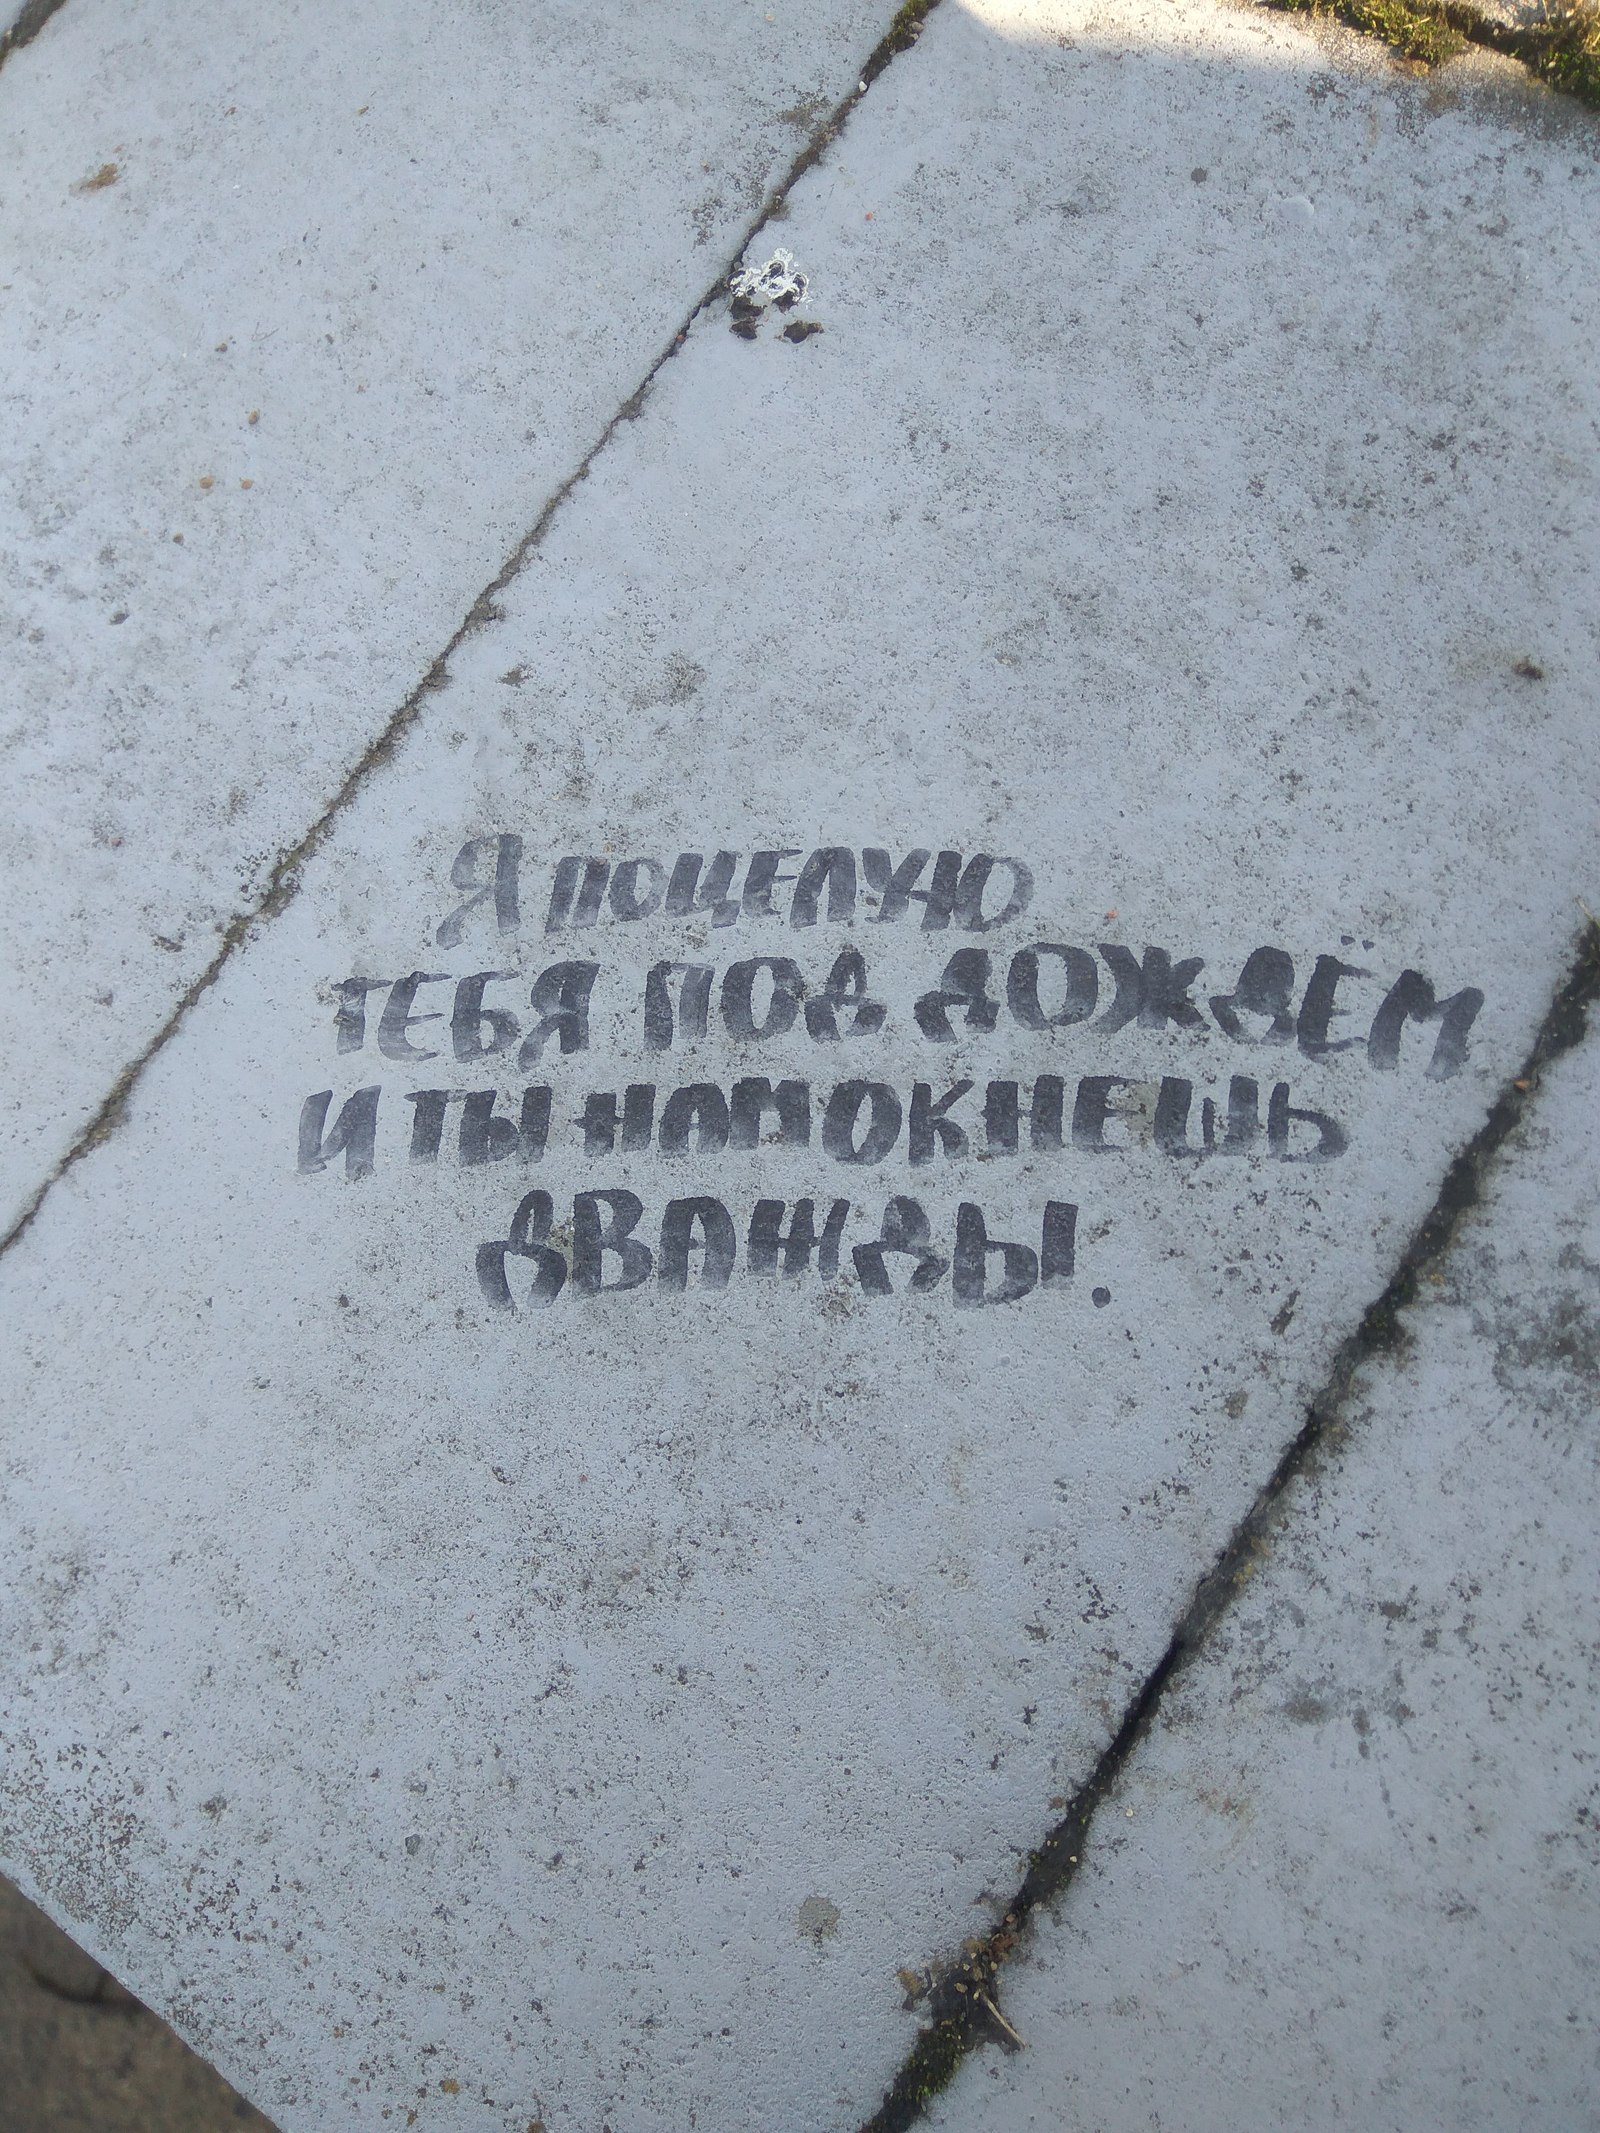 Я ПОЦЕЛУЮ
ТЕБЯ ПОД ДОЖДЁМ
И ТЫ НАМОКНЕШЬ
ДВАЖДЫ.